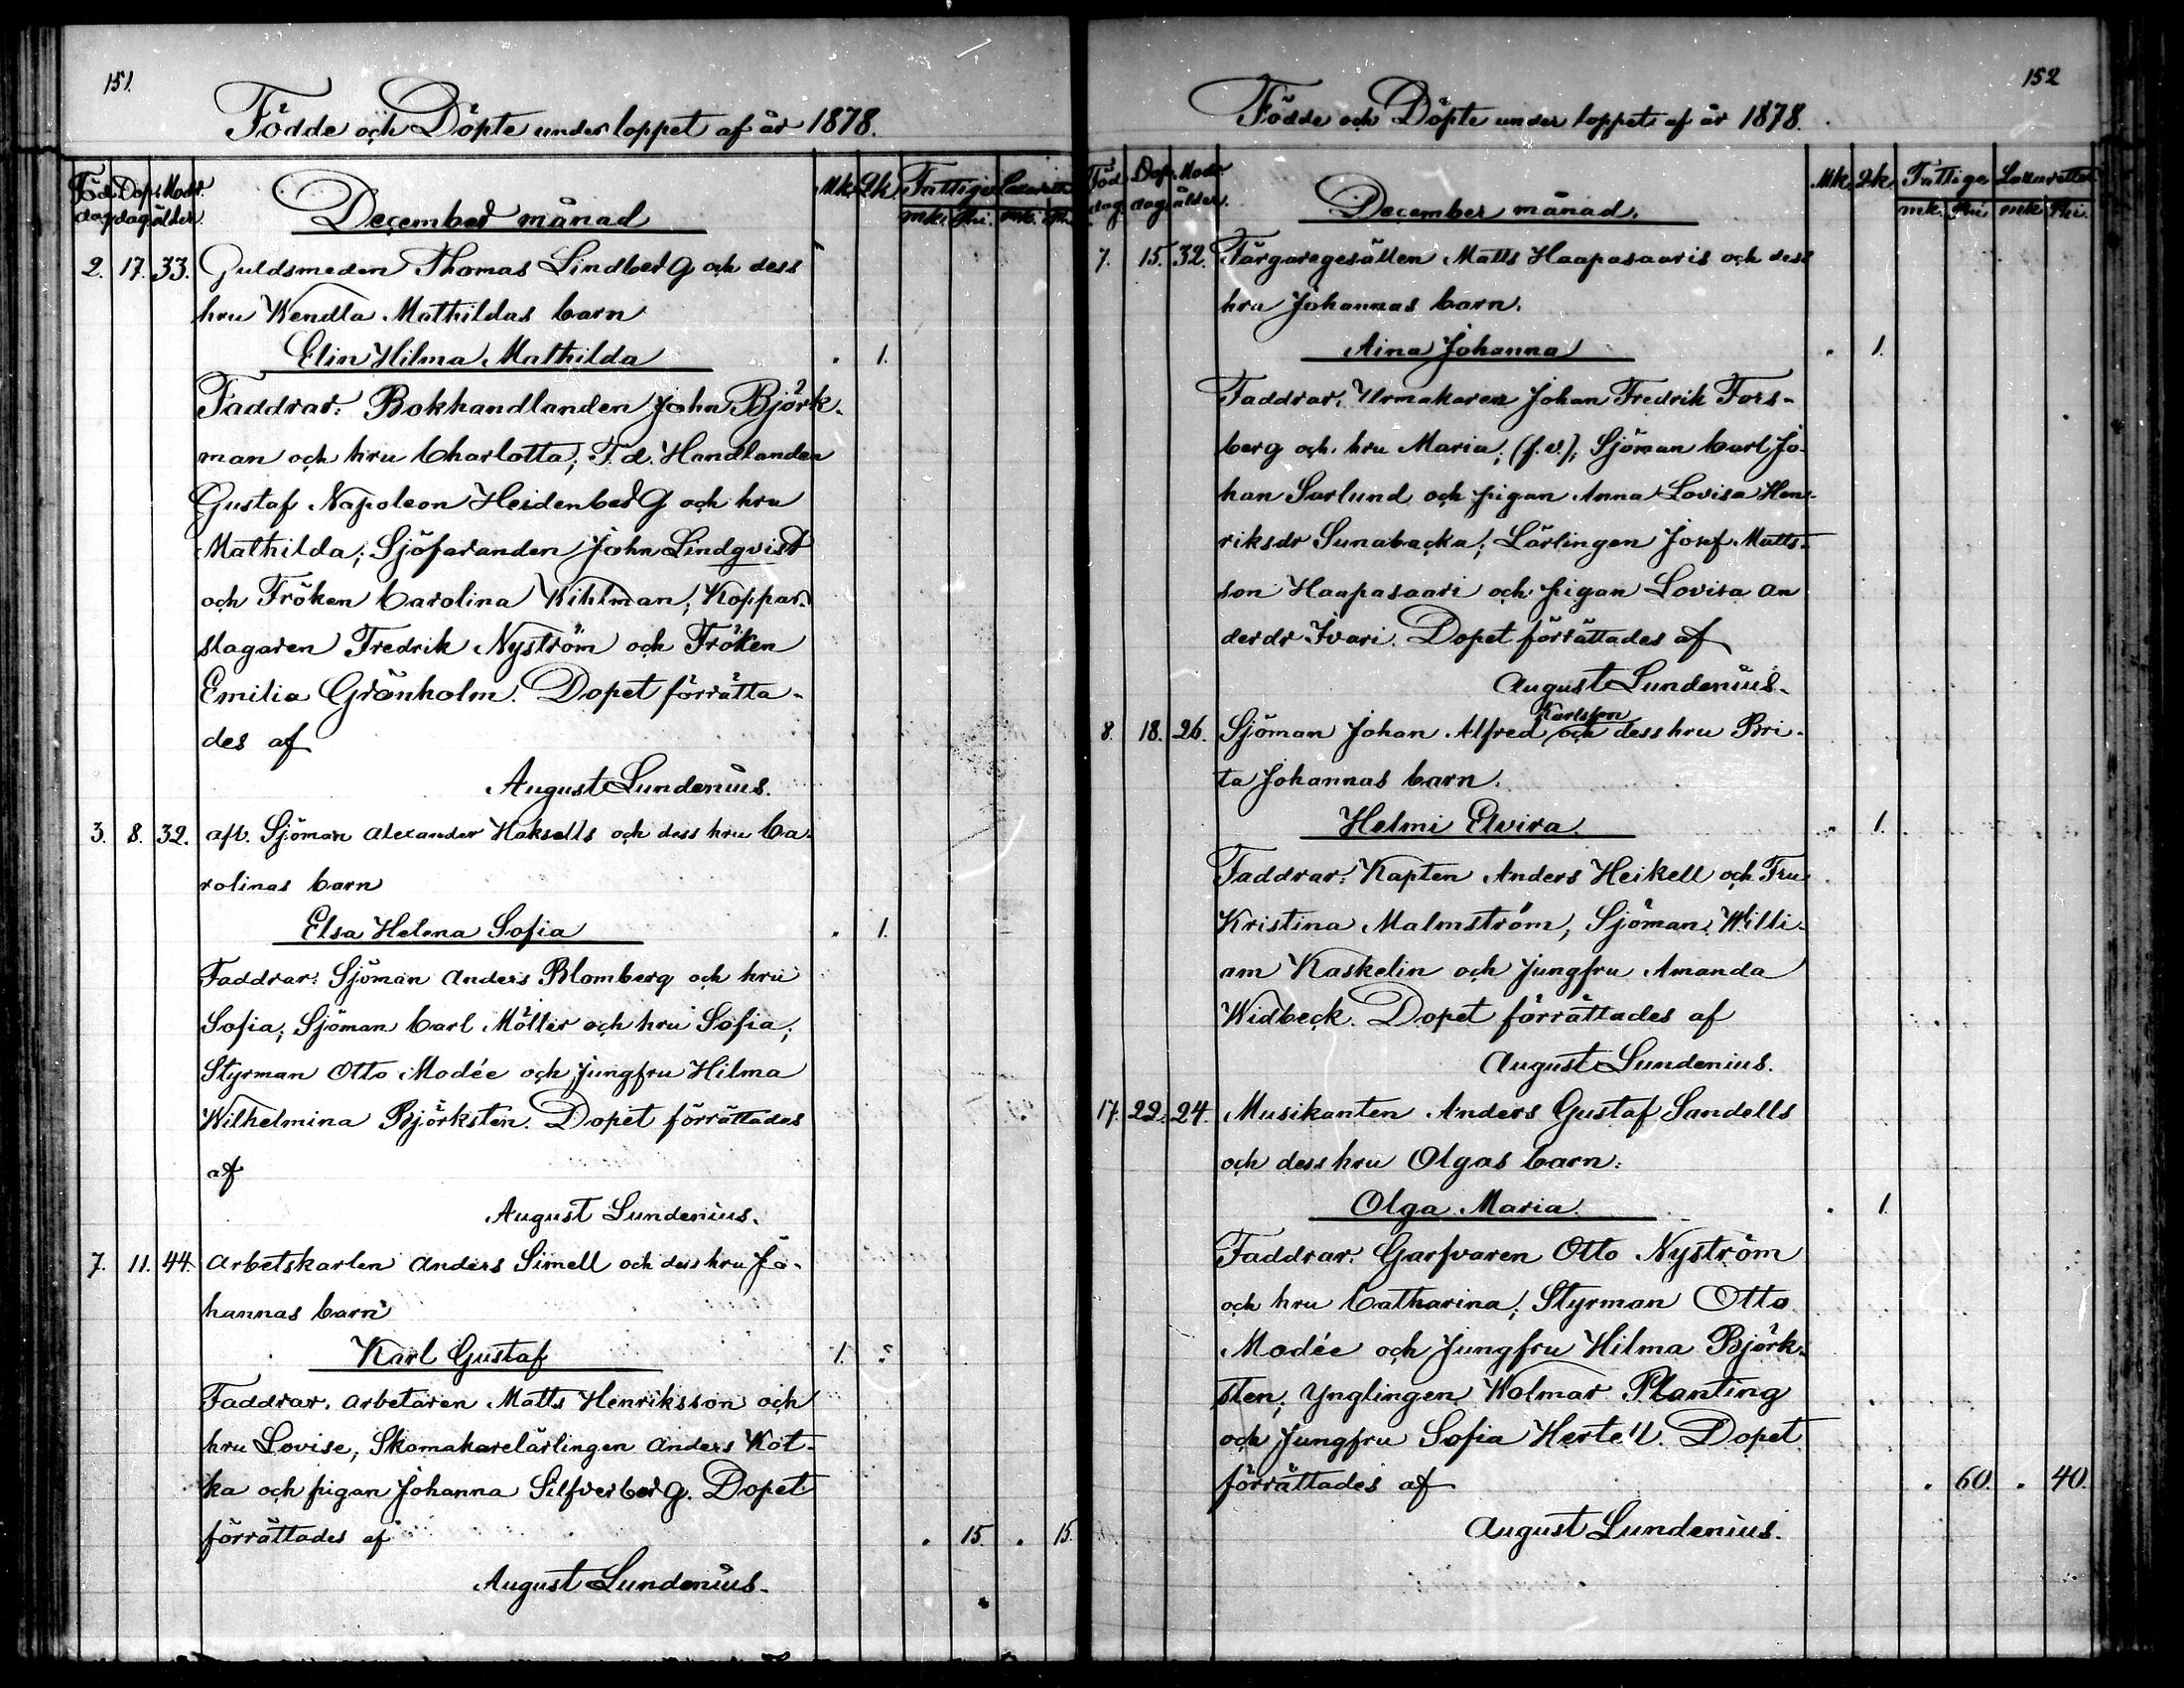 151.
Födde och Döpte under loppet af år 1878.
Föd. dag. Dop. dag. Modr. ålder. December månad Mk. Qk. Fattige mk. Pni. Lazarettet mk. Pni.
2. 17. 33. Guldsmeden Thomas Lindberg och dess
hru Wendla Mathildas barn
Elin Hilma Mathilda . 1.
Faddrar: Bokhandlanden John Björk-
man och hru Charlotta; F.d. Handlanden
Gustaf Napoleon Heidenberg och hru
Mathilda; Sjöfaranden John Lindqvist
och Fröken Carolina Kihlman; Koppar-
slagaren Fredrik Nyström och Fröken
Emilia Grönholm. Dopet förrätta-
des af
August Lundenius.
3. 8. 32. afl. Sjöman Alexander Haksells och dess hru Ca-
rolinas barn
Elsa Helena Sofia . 1.
Faddrar: Sjöman Anders Blomberg och hru
Sofia; Sjöman Carl Möller och hru Sofia;
Styrman Otto Modée och Jungfru Hilma
Wilhelmina Björksten. Dopet förrättades
af
August Lundenius.
7. 11. 44. Arbetskarlen Anders Simell och dess hru Jo-
hannas barn
Karl Gustaf 1. .
Faddrar. Arbetaren Matts Henriksson och
hru Lovise, Skomakarelärlingen Anders Kot-
ka och pigan Johanna Silfverberg. Dopet
förrättades af . 15. . 15.
August Lundenius.
152
Födde och Döpte under loppet af år 1878.
Föd. dag. Dop. dag. Modr. ålder. December månad. Mk. Qk. Fattige mk. Pni. Lazarettet mk. Pni.
7. 15. 32. Färgaregesällen Matts Haapasaaris och dess
hru Johannas barn.
Aina Johanna . 1.
Faddrar. Urmakaren Johan Fredrik Fors-
berg och hru Maria; (f.v.); Sjöman Carl Jo-
han Sarlund och pigan Anna Lovisa Hen-
riksdr Sunabacka; Lärlingen Josef Matts-
son Haapasaari och pigan Lovisa An
derdr Ivari. Dopet förrättades af
August Lundenius.
Karlsson
8. 18. 26. Sjöman Johan Alfred och dess hru Bri-
ta Johannas barn.
Helmi Elvira . 1.
Faddrar: Kapten Anders Heikell och Fru
Kristina Malmström; Sjöman Willi-
am Kaskelin och Jungfru Amanda
Widbeck. Dopet förrättades af
August Lundenius.
17. 22. 24. Musikanten Anders Gustaf Sandells
och dess hru Olgas barn:
Olga Maria . 1.
Faddrar. Garfvaren Otto Nyström
och hru Catharina; Styrman Otto
Modée och Jungfru Hilma Björk-
sten; Ynglingen Wolmar Planting
och Jungfru Sofia Hertell. Dopet
förrättades af . 60. . 40.
August Lundenius.